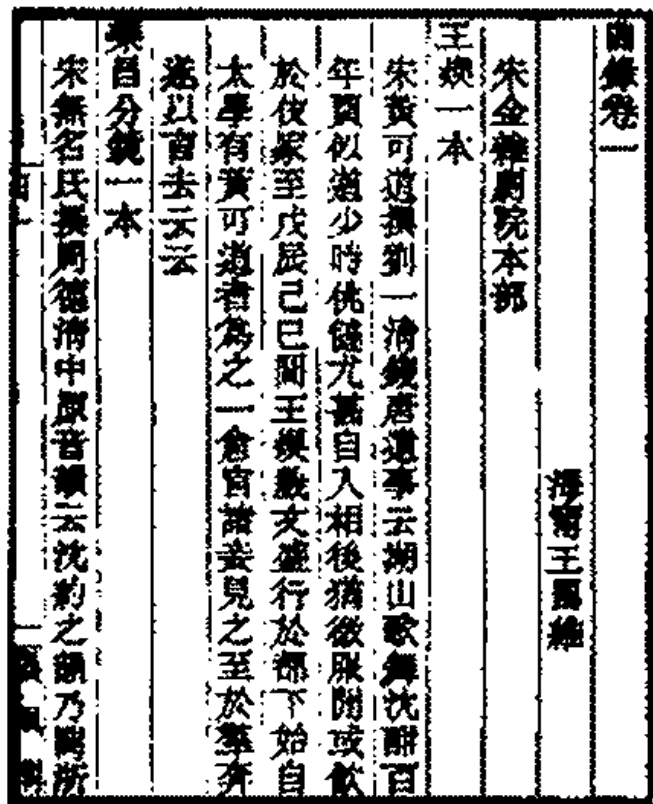 曲錄卷一
海寧王國維
宋金雜劇院本部
王煥一本
宋黃可道撰劉一清錢唐遺事云湖山歌舞沈酣百
年賈似道少時佻㒓尤甚自入相後猶微服閒或飲
於伎家至戊辰己巳間王煥戲文盛行於都下始自
太學有黃可道者爲之一倉官諸妾見之至於羣奔
遂以言去云云
樂昌分鏡一本
宋無名氏撰周德淸中原音韻云沈約之韻乃閩浙